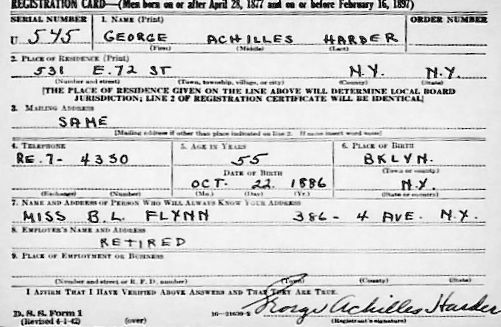 REGISTRATION CARD—(Men born on or after April 28, 1877 and on or before February 16, 1897)
SERIAL NUMBER 1. NAME (Print) ORDER NUMBER
U 545 GEORGE ACHILLES HARDER
(First) (Middle) (Last)
2. PLACE OF RESIDENCE (Print)
531 E. 72 ST N.Y. N.Y.
(Number and street) (Town, township, village, or city) (County) (State)
[THE PLACE OF RESIDENCE GIVEN ON THE LINE ABOVE WILL DETERMINE LOCAL BOARD
JURISDICTION; LINE 2 OF REGISTRATION CERTIFICATE WILL BE IDENTICAL]
3. MAILING ADDRESS
SAME
[Mailing address if other than place indicated on line 2. If same insert word same]
4. TELEPHONE 5. AGE IN YEARS 6. PLACE OF BIRTH
RE. 7- 4330 55 BKLYN.
DATE OF BIRTH (Town or county)
OCT. 22 1886 N.Y.
(Exchange) (Number) (Mo.) (Day) (Yr.) (State or country)
7. NAME AND ADDRESS OF PERSON WHO WILL ALWAYS KNOW YOUR ADDRESS
MISS B.L. FLYNN 386- 4 AVE. N.Y.
8. EMPLOYER'S NAME AND ADDRESS
RETIRED
9. PLACE OF EMPLOYMENT OR BUSINESS
(Number and street or R. F. D. number) (Town) (County) (State)
I AFFIRM THAT I HAVE VERIFIED ABOVE ANSWERS AND THAT THEY ARE TRUE.
D. S. S. Form 1 George Achilles Harder
(Revised 4-1-42) (over) 16-21630-2 (Registrant's signature)